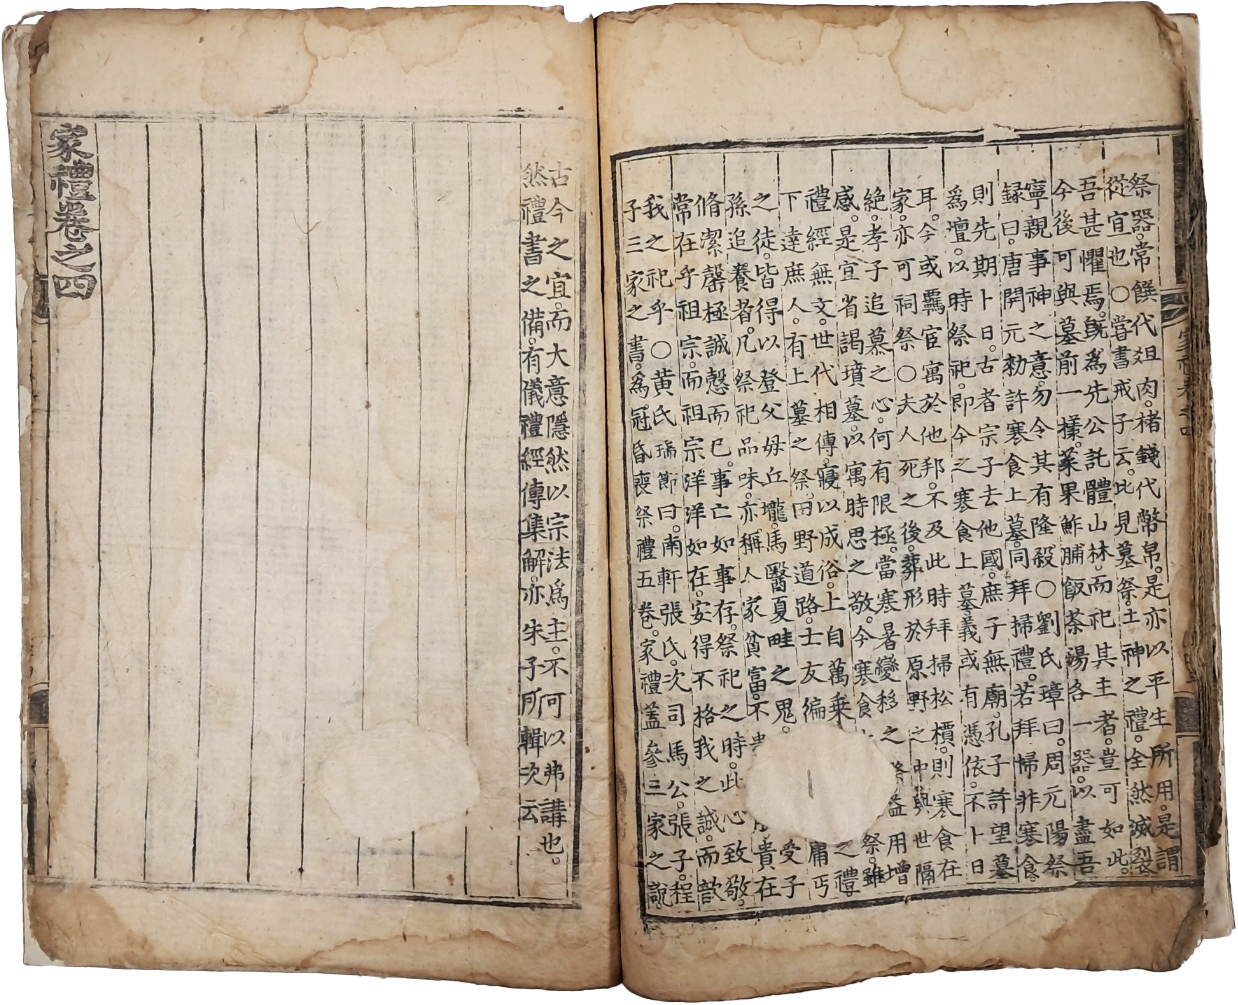 祭器。常饌代俎肉。楮錢代幣帛。是亦以平生所用。是謂
從宜也○嘗書戒子云。此見墓祭。土神之禮。全然滅裂
吾甚懼焉。旣爲先公託體山林。而祀其主者。豈可如此
今後可與墓前一樣。菜果鮓脯飯茶湯各一器。以盡吾
寧親事神之意。勿令其有隆殺。○劉氏璋曰。周元陽祭
録曰。唐開元勑許寒食上墓。同拜掃禮。若拜掃非寒食。
則先期卜日。古者宗子去他國。庶子無廟。孔子許望墓
爲壇。以時祭祀。即今之寒食上墓。義或有憑依。不卜日
耳。今或羈宦寓於他邦。不及此時拜掃松檟。則寒食在
家。亦可祠祭○夫人死之後。葬形於原野之中。與世隔
絶。孝子追慕之心。何有限極。當寒暑變移之際。益用增
感。是宜省謁墳墓。以寓時思之敬。今寒食祭。雖
禮經無文。世代相傳。寖以成俗。上自萬乗之禮。
下達庶人。有上墓之祭。田野道路。士友徧庸丐
之徒。皆得以登父母丘壠。馬醫夏畦之鬼。受子
孫追養者。凡祭祀品味。亦稱人家貧富。不貴在
脩潔罄極誠慤而已。事亡如事存。祭祀之時。此心致敬。
常在乎祖宗。而祖宗洋洋如在。安得不格我之誠。而歆
我之祀乎○黄氏瑞節曰。南軒張氏。次司馬公。張子。程
子三家之書。爲冠昏喪祭禮五卷。家禮蓋參三家之說。
古今之宜。而大意隱然以宗法爲主。不可以弗講也。
然禮書之備。有儀禮經傳集解。亦朱子所輯次云
家禮卷之四